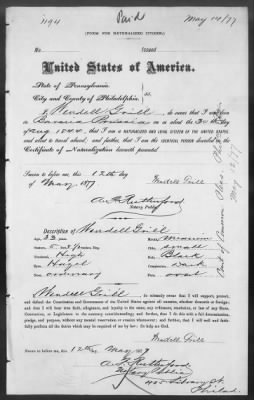 1194
Paid
May 14/77
(FORM FOR NATURALIZED CITIZEN.)
No. Issued
United States of America.
State of Pennsylvania,
City and County of Philadelphia, } ss.
I, Wendell Grill do swear that I was born
in Bavaria on or about the 30th day
of Aug 1844, that I am a NATURALIZED AND LOYAL CITIZEN OF THE UNITED STATES,
and about to travel abroad; and further, that I am the IDENTICAL PERSON described in the
Certificate of Naturalization herewith presented.
Sworn to before me, this 12th day
of May 1877
Wendell Grill
Rutherford
Notary Public.
Description of Wendell Grill
Age, 32 years.
Mouth, medium
Stature, 5 feet inches, Eng.
Chin, small
Forehead, High
Hair, Black
Eyes, Hazel
Complexion, dark
Nose, ordinary
Face, oval
I, Wendell Grill do solemnly swear that I will support, protect,
and defend the Constitution and Government of the United States against all enemies, whether domestic or foreign;
and that I will bear true faith, allegiance, and loyalty to the same, any ordinance, resolution, or law of any State,
Convention, or Legislature to the contrary notwithstanding; and further, that I do this with a full determination,
pledge, and purpose, without any mental reservation or evasion whatsoever; and further, that I will well and faith-
fully perform all the duties which may be required of me by law. So help me God.
Wendell Grill
Sworn to before me, this 12th May 1877
Rutherford
Notary Public
Philad.
May 14/77